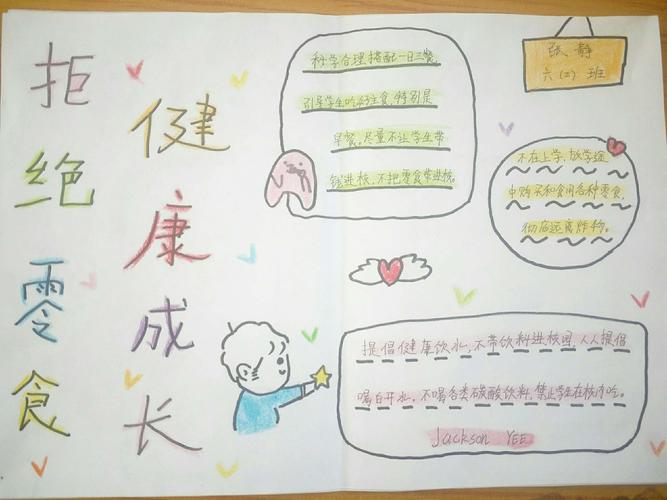 拒绝零食
健康成长
科学合理搭配一日三餐,
引导学生吃好主食,特别是
早餐。尽量不让学生带
钱进校,不把零食带进校。
张静
六(二)班
不在上学,放学途
中购买和食用各种零食,
彻底远离炸物。
提倡健康饮水,不带饮料进校园,人人提倡
喝白开水,不喝各类碳酸饮料,禁止学生在校内吃。
Jackson YEE